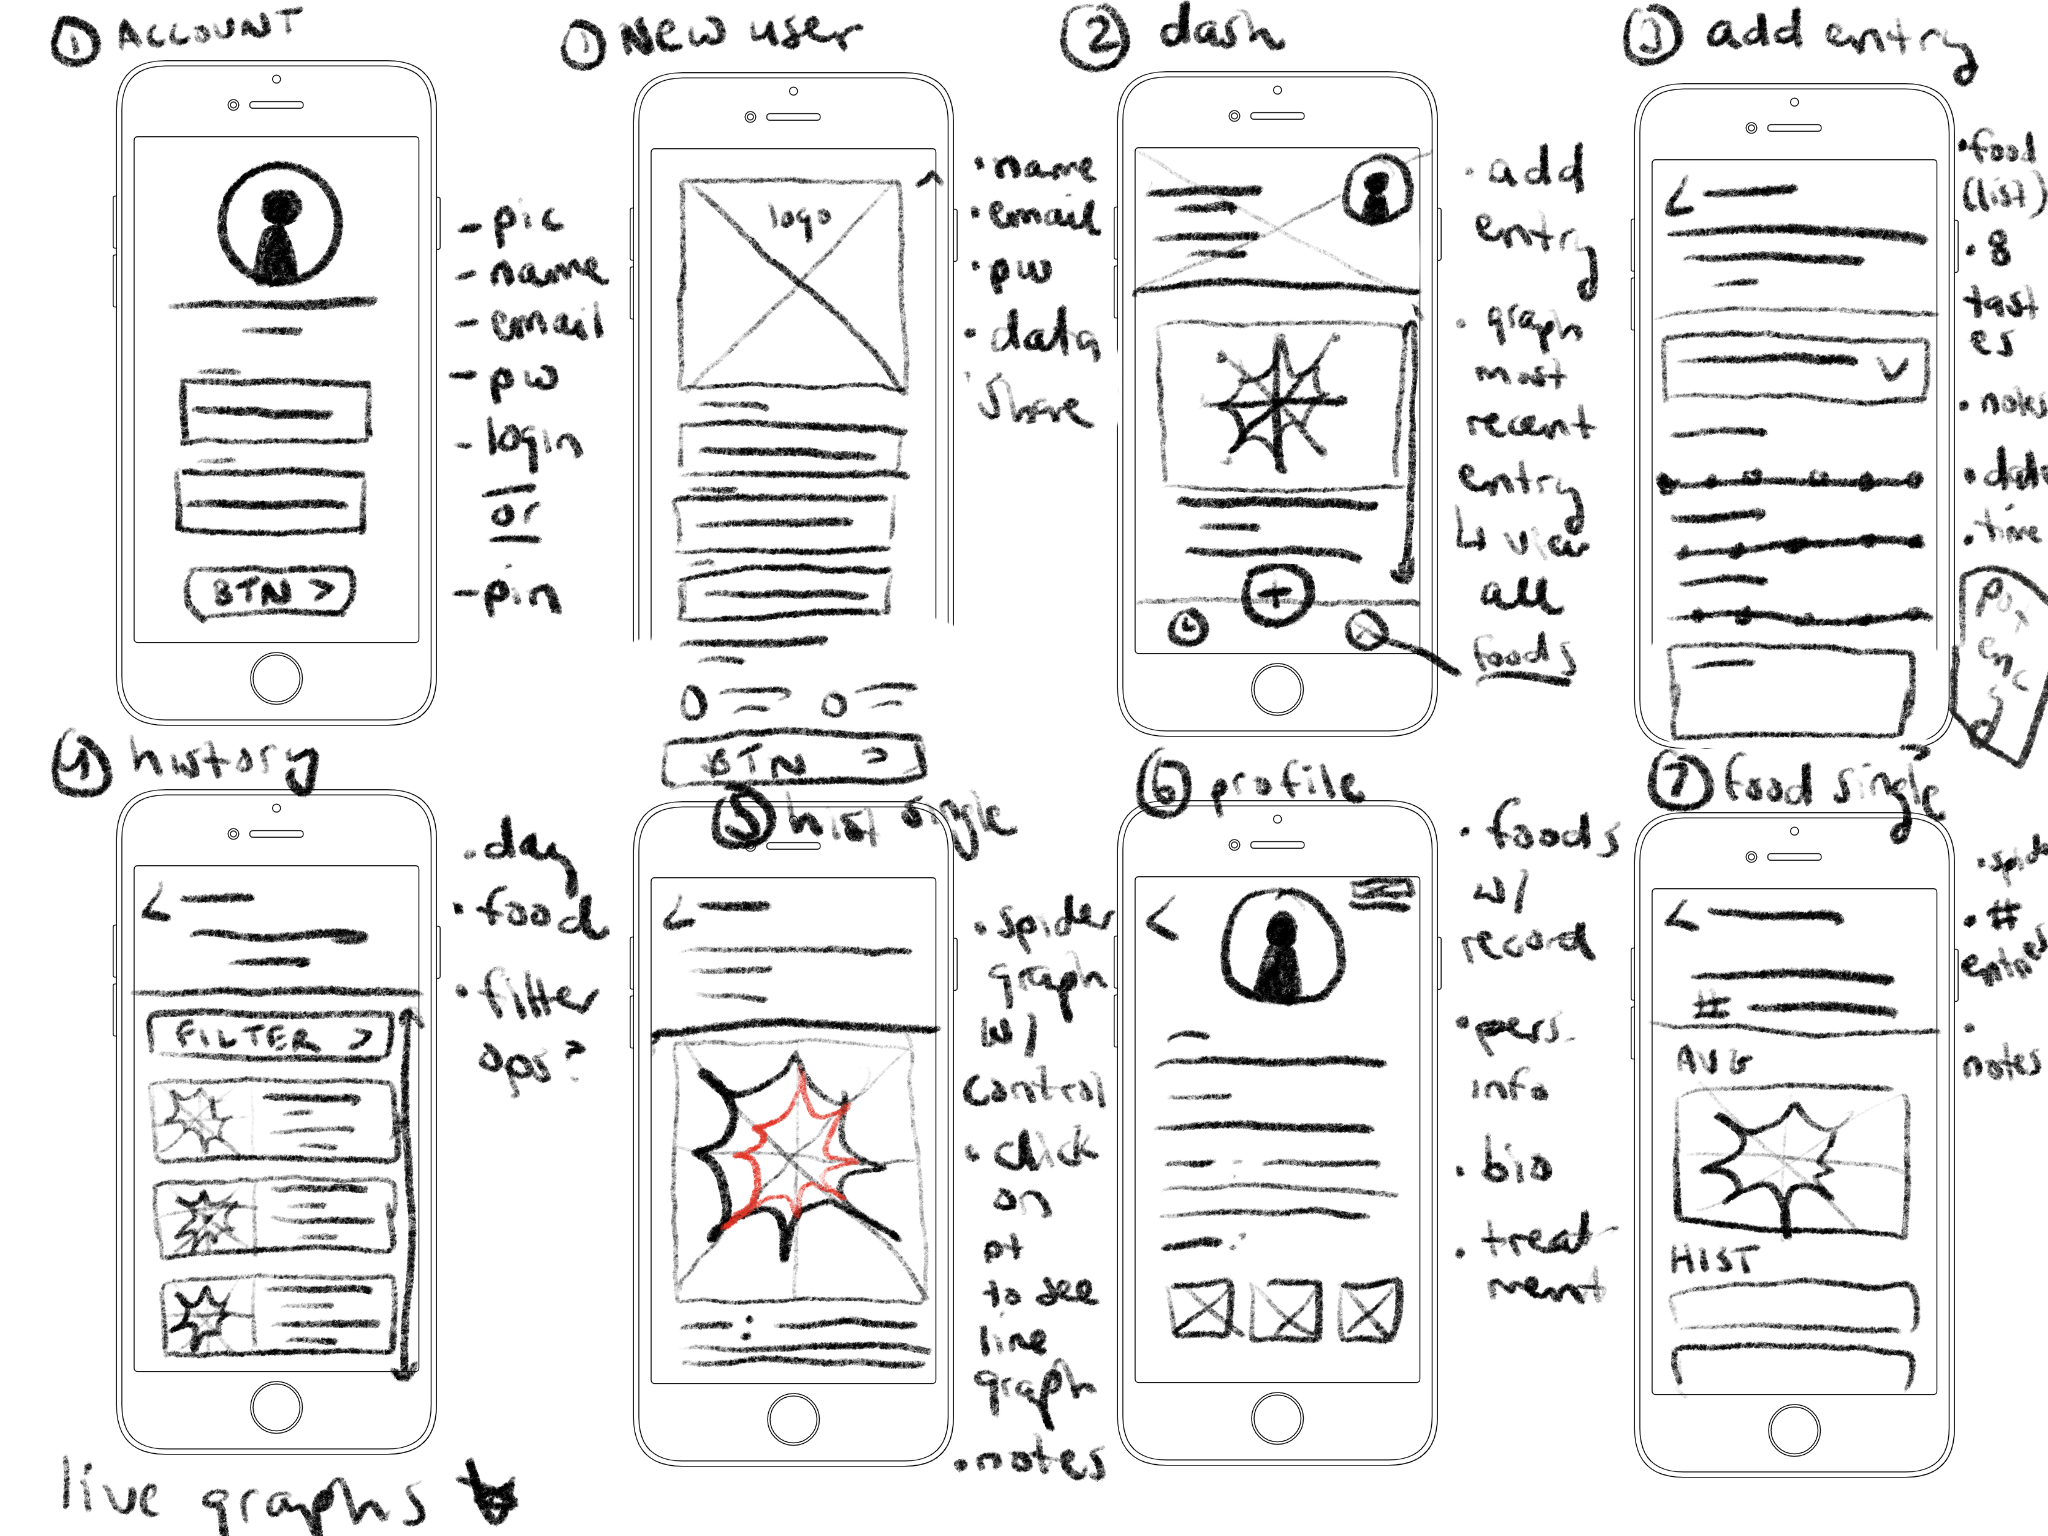 1 ACCOUNT
- pic
- name
- email
- pw
- login
or
- pin
BTN >
1 New user
logo
BTN >
• name
• email
• pw
• data
share
2 dash
+
• add
entry
• graph
most
recent
entry
↳ view
all
foods
3 add entry
• food
(list)
• 8
tast
es
• notes
• date
• time
4 history
FILTER >
• day
• food
• filter
ops?
5 hist single
• spider
graph
w/
control
• click
on
pt
to see
line
graph
• notes
6 profile
• foods
w/
record
• pers.
info
• bio
• treat-
ment
7 food single
#
AVG
HIST
• spider
• #
entries
•
notes
live graphs